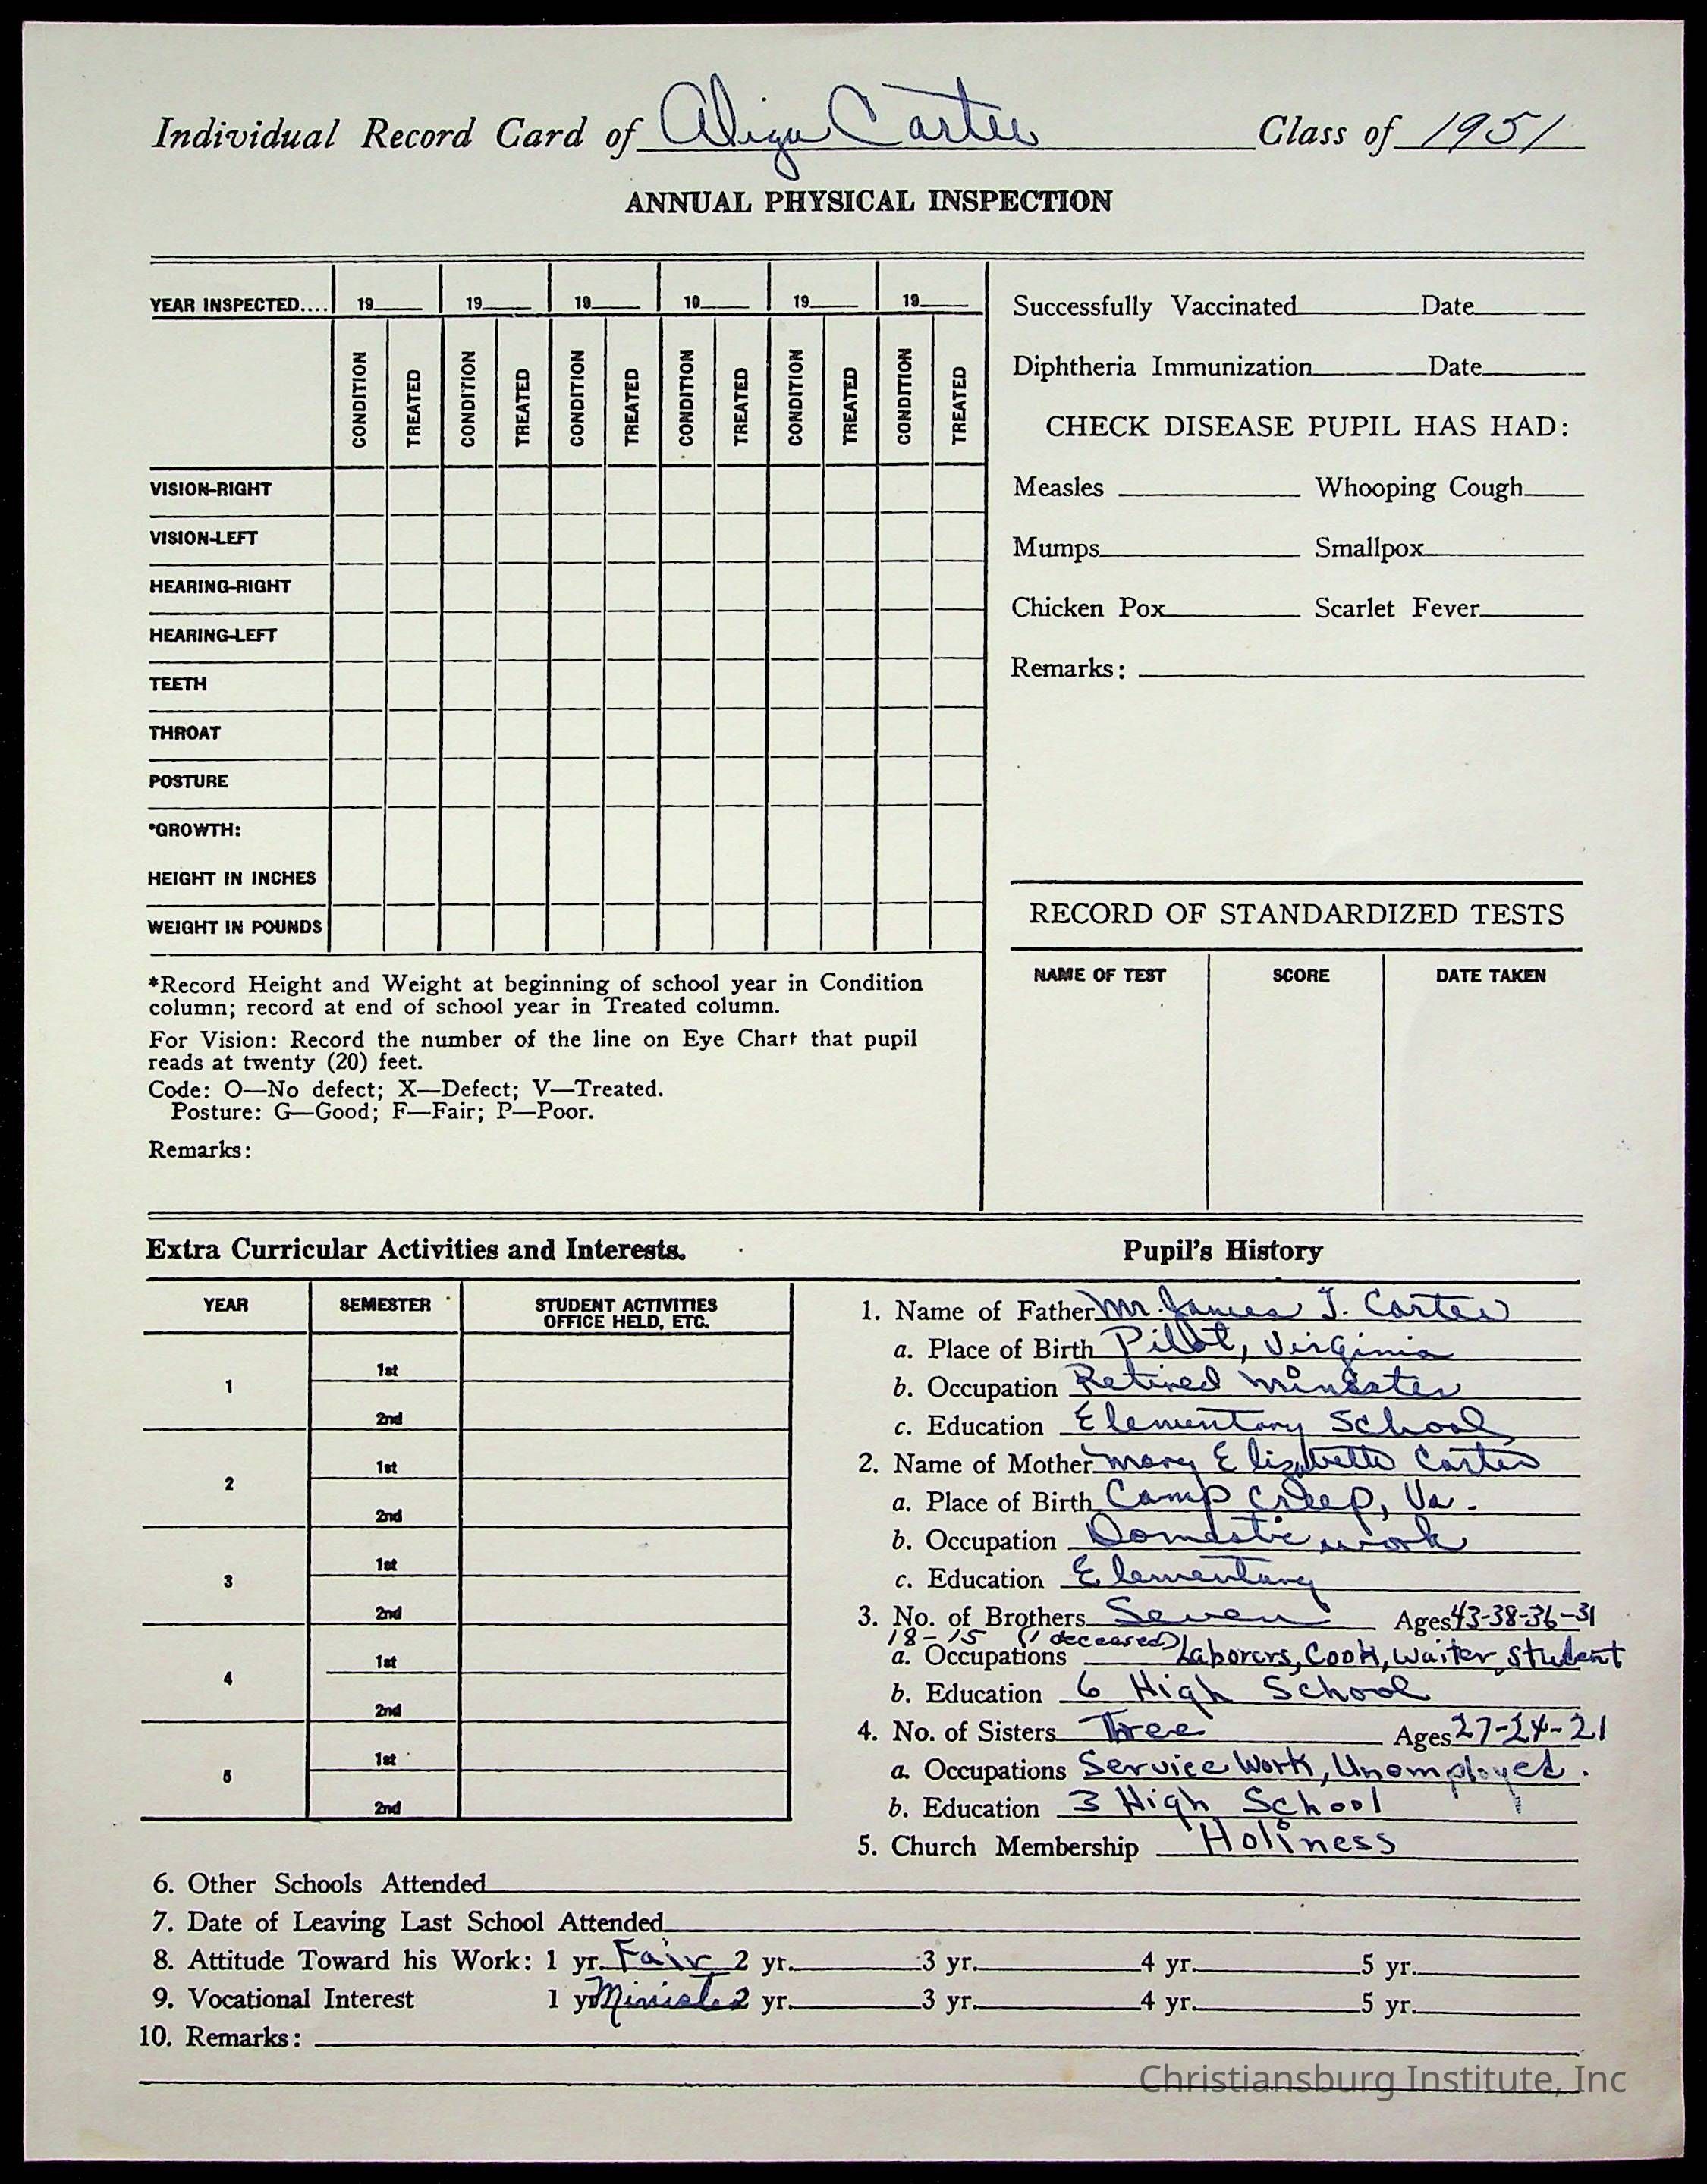 Individual Record Card of Aliza Carter Class of 1951
ANNUAL PHYSICAL INSPECTION
YEAR INSPECTED.... 19 19 19 19 19 19
CONDITION TREATED CONDITION TREATED CONDITION TREATED CONDITION TREATED CONDITION TREATED CONDITION TREATED
VISION-RIGHT
VISION-LEFT
HEARING-RIGHT
HEARING-LEFT
TEETH
THROAT
POSTURE
*GROWTH:
HEIGHT IN INCHES
WEIGHT IN POUNDS
*Record Height and Weight at beginning of school year in Condition
column; record at end of school year in Treated column.
For Vision: Record the number of the line on Eye Chart that pupil
reads at twenty (20) feet.
Code: O—No defect; X—Defect; V—Treated.
Posture: G—Good; F—Fair; P—Poor.
Remarks:
Successfully Vaccinated Date
Diphtheria Immunization Date
CHECK DISEASE PUPIL HAS HAD:
Measles Whooping Cough
Mumps Smallpox
Chicken Pox Scarlet Fever
Remarks:
RECORD OF STANDARDIZED TESTS
NAME OF TEST SCORE DATE TAKEN
Extra Curricular Activities and Interests.
YEAR SEMESTER STUDENT ACTIVITIES
OFFICE HELD, ETC.
1 1st
2nd
2 1st
2nd
3 1st
2nd
4 1st
2nd
5 1st
2nd
Pupil's History
1. Name of Father Mr. James J. Carter
a. Place of Birth Pilot, Virginia
b. Occupation Retired Minister
c. Education Elementary School
2. Name of Mother Mary Elizabeth Carter
a. Place of Birth Camp Creep, Va.
b. Occupation Domestic work
c. Education Elementary
3. No. of Brothers Seven Ages 43-38-36-31
18-15 (1 deceased)
a. Occupations Laborers, Cook, Waiter, Student
b. Education 6 High School
4. No. of Sisters Three Ages 27-24-21
a. Occupations Service Work, Unemployed.
b. Education 3 High School
5. Church Membership Holiness
6. Other Schools Attended
7. Date of Leaving Last School Attended
8. Attitude Toward his Work: 1 yr. Fair 2 yr. 3 yr. 4 yr. 5 yr.
9. Vocational Interest 1 yr. Minister 2 yr. 3 yr. 4 yr. 5 yr.
10. Remarks:
Christiansburg Institute, Inc